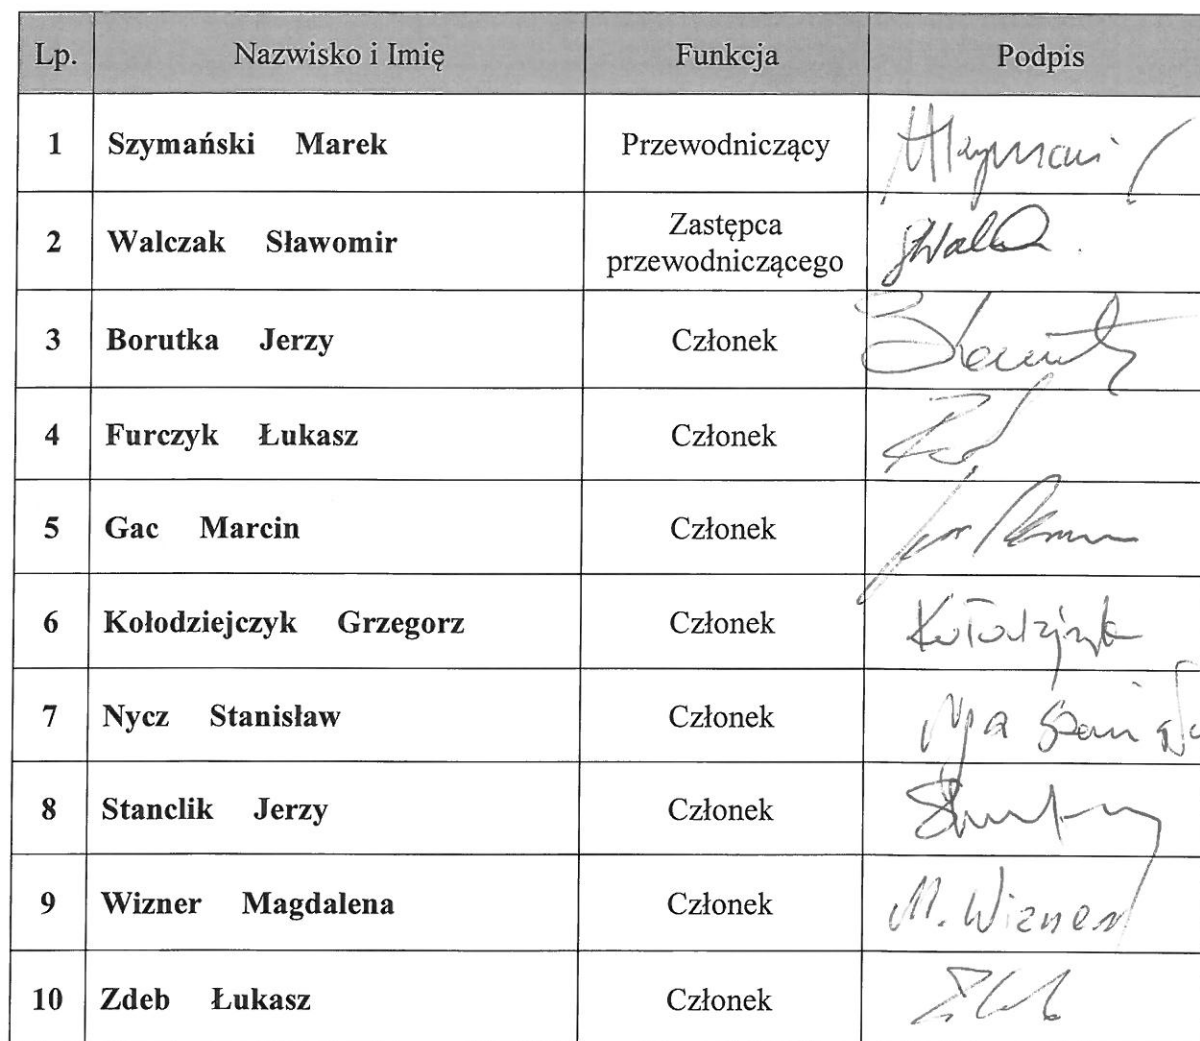 Lp. Nazwisko i Imię Funkcja Podpis
1 Szymański Marek Przewodniczący
2 Walczak Sławomir Zastępca
przewodniczącego
3 Borutka Jerzy Członek
4 Furczyk Łukasz Członek
5 Gac Marcin Członek
6 Kołodziejczyk Grzegorz Członek
7 Nycz Stanisław Członek
8 Stanclik Jerzy Członek
9 Wizner Magdalena Członek M. Wizner
10 Zdeb Łukasz Członek